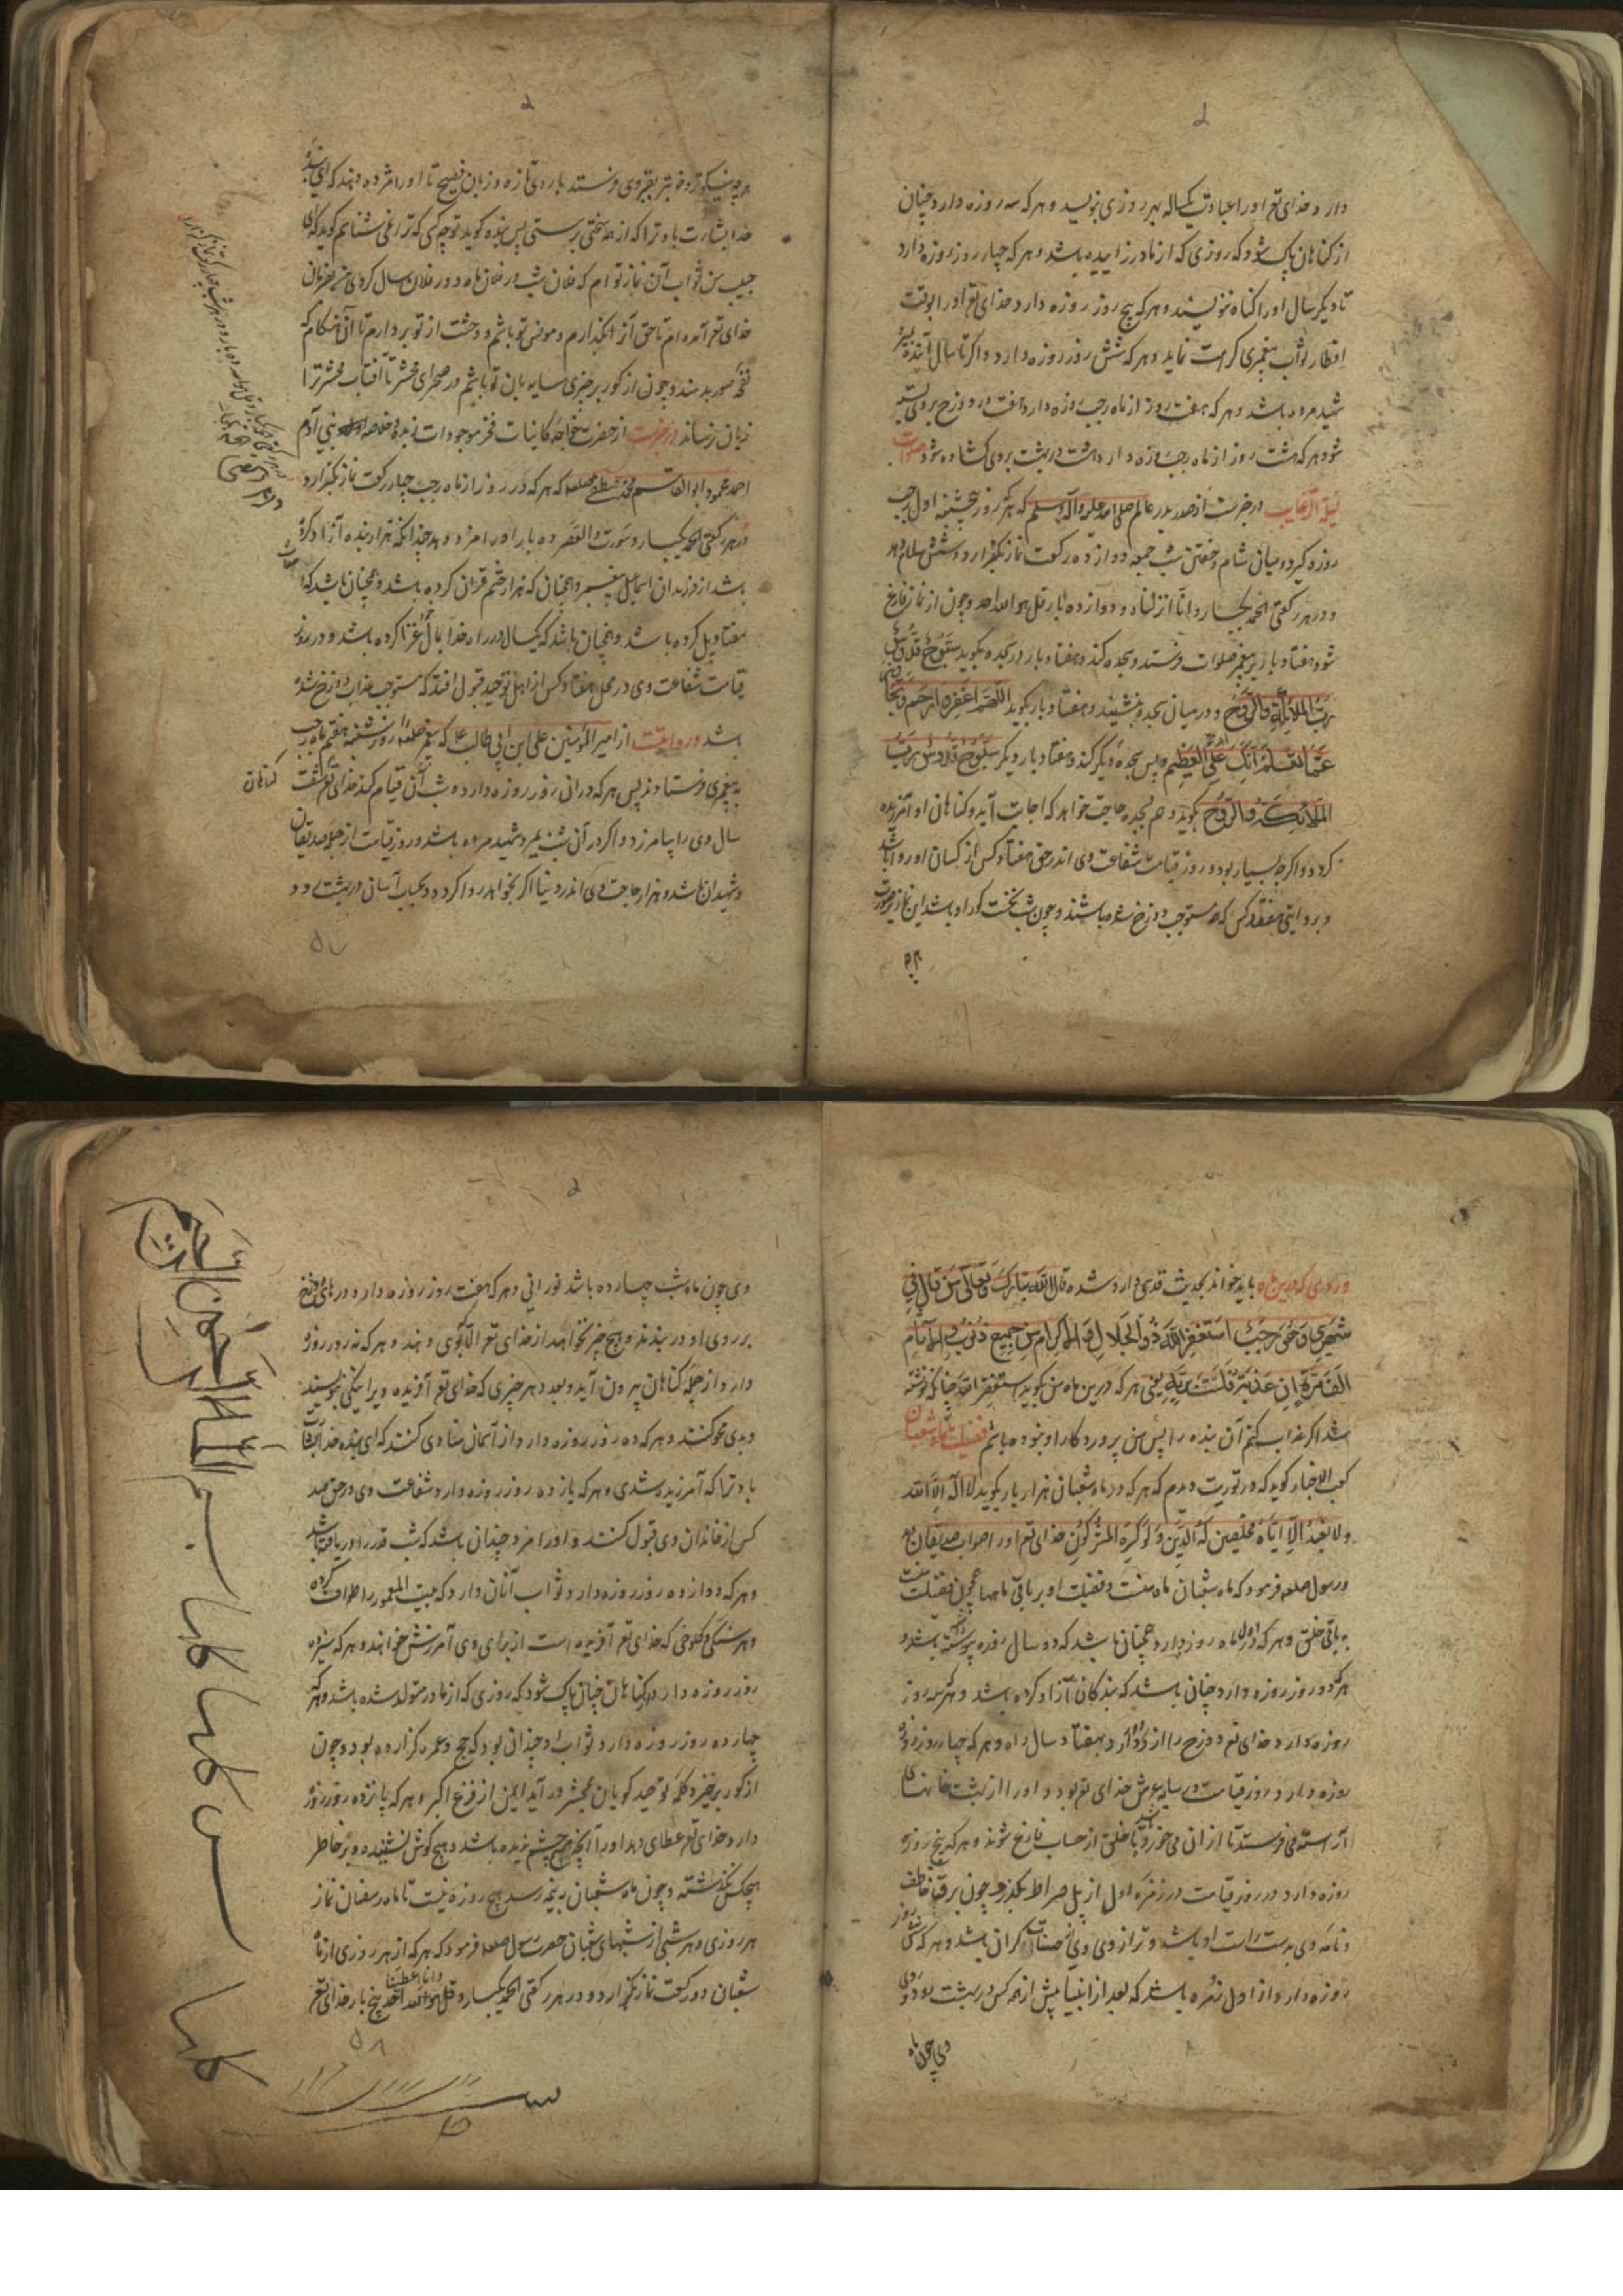 دارد خدای تع اورا عبادت یکساله بهر روزی نویسد و هر که سه روزه دارد چنان
از کناهان پاک شود که روزی که از مادر زاییده باشد و هر که چهار روز روزه دارد
تا دیکر سال اورا کناه ننویسند و هر که پنج روز روزه دارد خدای تع اورا بوقت
افطار ثواب پیغمبری کرامت نماید و هر که شش روز روزه دارد و اکر تا سال آینده بمیرد
شهید مرده باشد و هر که هفت روز از ماه رجب روزه دارد هفت در دوزخ بر وی بسته
شود هر که هشت روز از ماه رجب روزه دارد هشت در بهشت بر وی کشاده شود صلوات
لیلة الرغایب در خبرست از صدر بدر عالم صلی الله علیه وآله وسلم که هر که روز پنجشنبه اول رجب
روزه کیرد و میان شام و خفتن شب جمعه دوازده رکعت نماز بکزارد و شش سلام دهد
و در هر رکعتی الحمد یکبار و انا انزلناه و دوازده بار قل هو الله احد و چون از نماز فارغ
شود هفتاد بار بر پیغمبر صلوات فرستد و سجده کند و هفتاد بار در سجده بکوید سبوح قدوس
رب الملائکة والروح و در میان سجده بنشیند و هفتاد بار بکوید اللهم اغفر وارحم وتجاوز
عما تعلم انک علی العظیم و پس سجده دیکر کند و هفتاد بار دیکر سبوح قدوس رب
الملائکة والروح بکوید و هم بسجده حاجت خواهد که اجابت آید و کناهان او آمرزیده
کردد و اکرچه بسیار بود و روز قیامت شفاعت وی اندر حق هفتاد کس از کسان او روا باشد
و بروایتی هفتصد کس که مستوجب دوزخ شده باشند و چون شب نخست کور او باشد این نماز بصورت
هرچه نیکوتر و خوبتر بقبر وی فرستد با روی تازه و زبان فصیح تا اورا مژده دهند که ای بنده
خدا بشارت باد ترا که از همه سختی برستی پس بنده کوید تو چه کسی که ترا نمی شناسم کوید که ای
حبیب من ثواب آن نماز توام که فلان شب در فلان ماه و در فلان سال کردی بفرمان
خدای تع آمده ام تا حق آنرا بکذارم و مونس تو باشم و وحشت از تو بردارم تا آن هنکام که
نفخه صور بدمند و چون از کور برخیزی سایه بان تو باشم در صحرای محشر تا آفتاب محشر ترا
زیان نرساند در خبرست از حضرت خواجه کاینات فخر موجودات زبده و خلاصه بنی آدم
احمد محمود ابوالقاسم محمد مصطفی صلعم که هر که در روز از ماه رجب چهار رکعت نماز بکزارد
در هر رکعتی الحمد یکبار و سورت والعصر ده بار اورا مزد دهد چندانکه هزار بنده آزاد کرده
باشد از فرزندان اسماعیل پیغمبر و همچنان که هزار ختم قران کرده باشد و همچنان باشد که
هفتاد پل کرده باشد و همچنان باشد که یکسال در راه خدا بمال خود غزا کرده باشد و در روز
قیامت شفاعت وی در محل هفتاد کس از اهل توحید قبول افتد که مستوجب عذاب دوزخ شده
باشد و روایتست از امیر المؤمنین علی ابن ابی طالب ع که پیغمبر صلعم را روز شنبه هفتم ماه رجب
به پیغمبری فرستادند پس هر که در این روز روزه دارد و شب آن قیام کند خدای تع شصت
سال وی را بیامرزد و اکر در آن شب بمیرد شهید مرده باشد و روز قیامت از جمله صدیقان
و شهیدان باشد و هزار حاجت وی اندر دنیا اکر بخواهد روا کردد و بحساب آسان در بهشت رود
کناهان
۵۷
وردی که درین ماه باید خواند بحدیث قدسی وارد شده قال الله تبارک وتعالی من قال فی
شهری وهو رجب استغفر الله ذو الجلال والاکرام من جمیع ذنوب والآثام
الف مرة ان عذبته فلست بربه یعنی هر که درین ماه من بکوید استغفر الله چنانکه نوشته
شد اکر عذاب کنم آن بنده را پس من پروردکار او نبوده باشم فضیلت ماه شعبان
کعب الاخبار کوید که در توریت دیدم که هر که در ماه شعبان هزار بار بکوید لا اله الا الله
ولا نعبد الا ایاه مخلصین له الدین ولو کره المشرکون خدای تع اورا ثواب صدیقان دهد
و رسول صلعم فرمود که ماه شعبان ماه منست و فضیلت او بر باقی ماهها همچون فضیلت منست
به باقی خلق و هر که اول ماه روزه دارد همچنان باشد که دو سال روزه پیوسته داشته باشد و
هر که دو روز روزه دارد چنان باشد که بندکان آزاد کرده باشد و هر که سه روز
روزه دارد خدای تع دوزخ را از او دور دارد بهفتاد سال راه و هر که چهار روز
روزه دارد روز قیامت در سایه عرش خدای تع بود و اورا از بهشت خانهای
آراسته می فرستد تا از آن می خورد تا خلق از حساب فارغ شوند و هر که پنج روز
روزه دارد در روز قیامت در زمره اول از پل صراط بکذرد چون برق خاطف
و نامه وی بدست راست او باشد و ترازوی وی از حسنات کران باشد و هر که شش روز
روزه دارد از اول زمره باشد که بعد از انبیا پیش از همه کس در بهشت رود و روی
وی چون ماه
وی چون ماه شب چهارده باشد نورانی و هر که هفت روز روزه دارد درهای دوزخ
بر روی او در بندند و هیچ چیز نخواهد از خدای تع الا که وی دهند و هر که نه روز روزه
دارد از جمله کناهان بیرون آید و بعدد هر چیزی که خدای تع آفریده ویرا نیکی نویسند
و بدی محو کنند و هر که ده روز روزه دارد از آسمان منادی کنند که ای بنده خدا بشارت
باد ترا که آمرزیده شدی و هر که یازده روز روزه دارد شفاعت وی در حق صد
کس از خاندان وی قبول کنند و اورا مزد چندان باشد که شب قدر را دریافته باشد
و هر که دوازده روز روزه دارد ثواب آنان دارد که بیت المعمور را طواف کرده
و هر سنکی و کلوخی که خدای تع آفریده است از برای وی آمرزش خواهند و هر که سیزده
روز روزه دارد از کناهان چنان پاک شود که روزی که از مادر متولد شده باشد و هر که
چهارده روز روزه دارد ثواب او چندانی بود که حج و عمره کزارده بود و چون
از کور برخیزد کلمه توحید کویان بمحشر در آید ایمن از فزع اکبر و هر که پانزده روز روزه
دارد خدای تع عطای دهد اورا آنکه هیچ چشم ندیده باشد و هیچ کوش نشنیده و بر خاطر
هیچکس نکذشته و چون ماه شعبان به نیمه رسید هیچ روزه نیست تا ماه رمضان نماز
هر روزی و هر شبی از شبهای شعبان حضرت رسول صلعم فرمود که هر که از هر روزی از ماه
شعبان دو رکعت نماز بکزارد و در هر رکعتی الحمد یکبار و قل هو الله احد پنج بار خدای تع
وانا اعطینا
۵۸
بسم الله الرحمن الرحیم